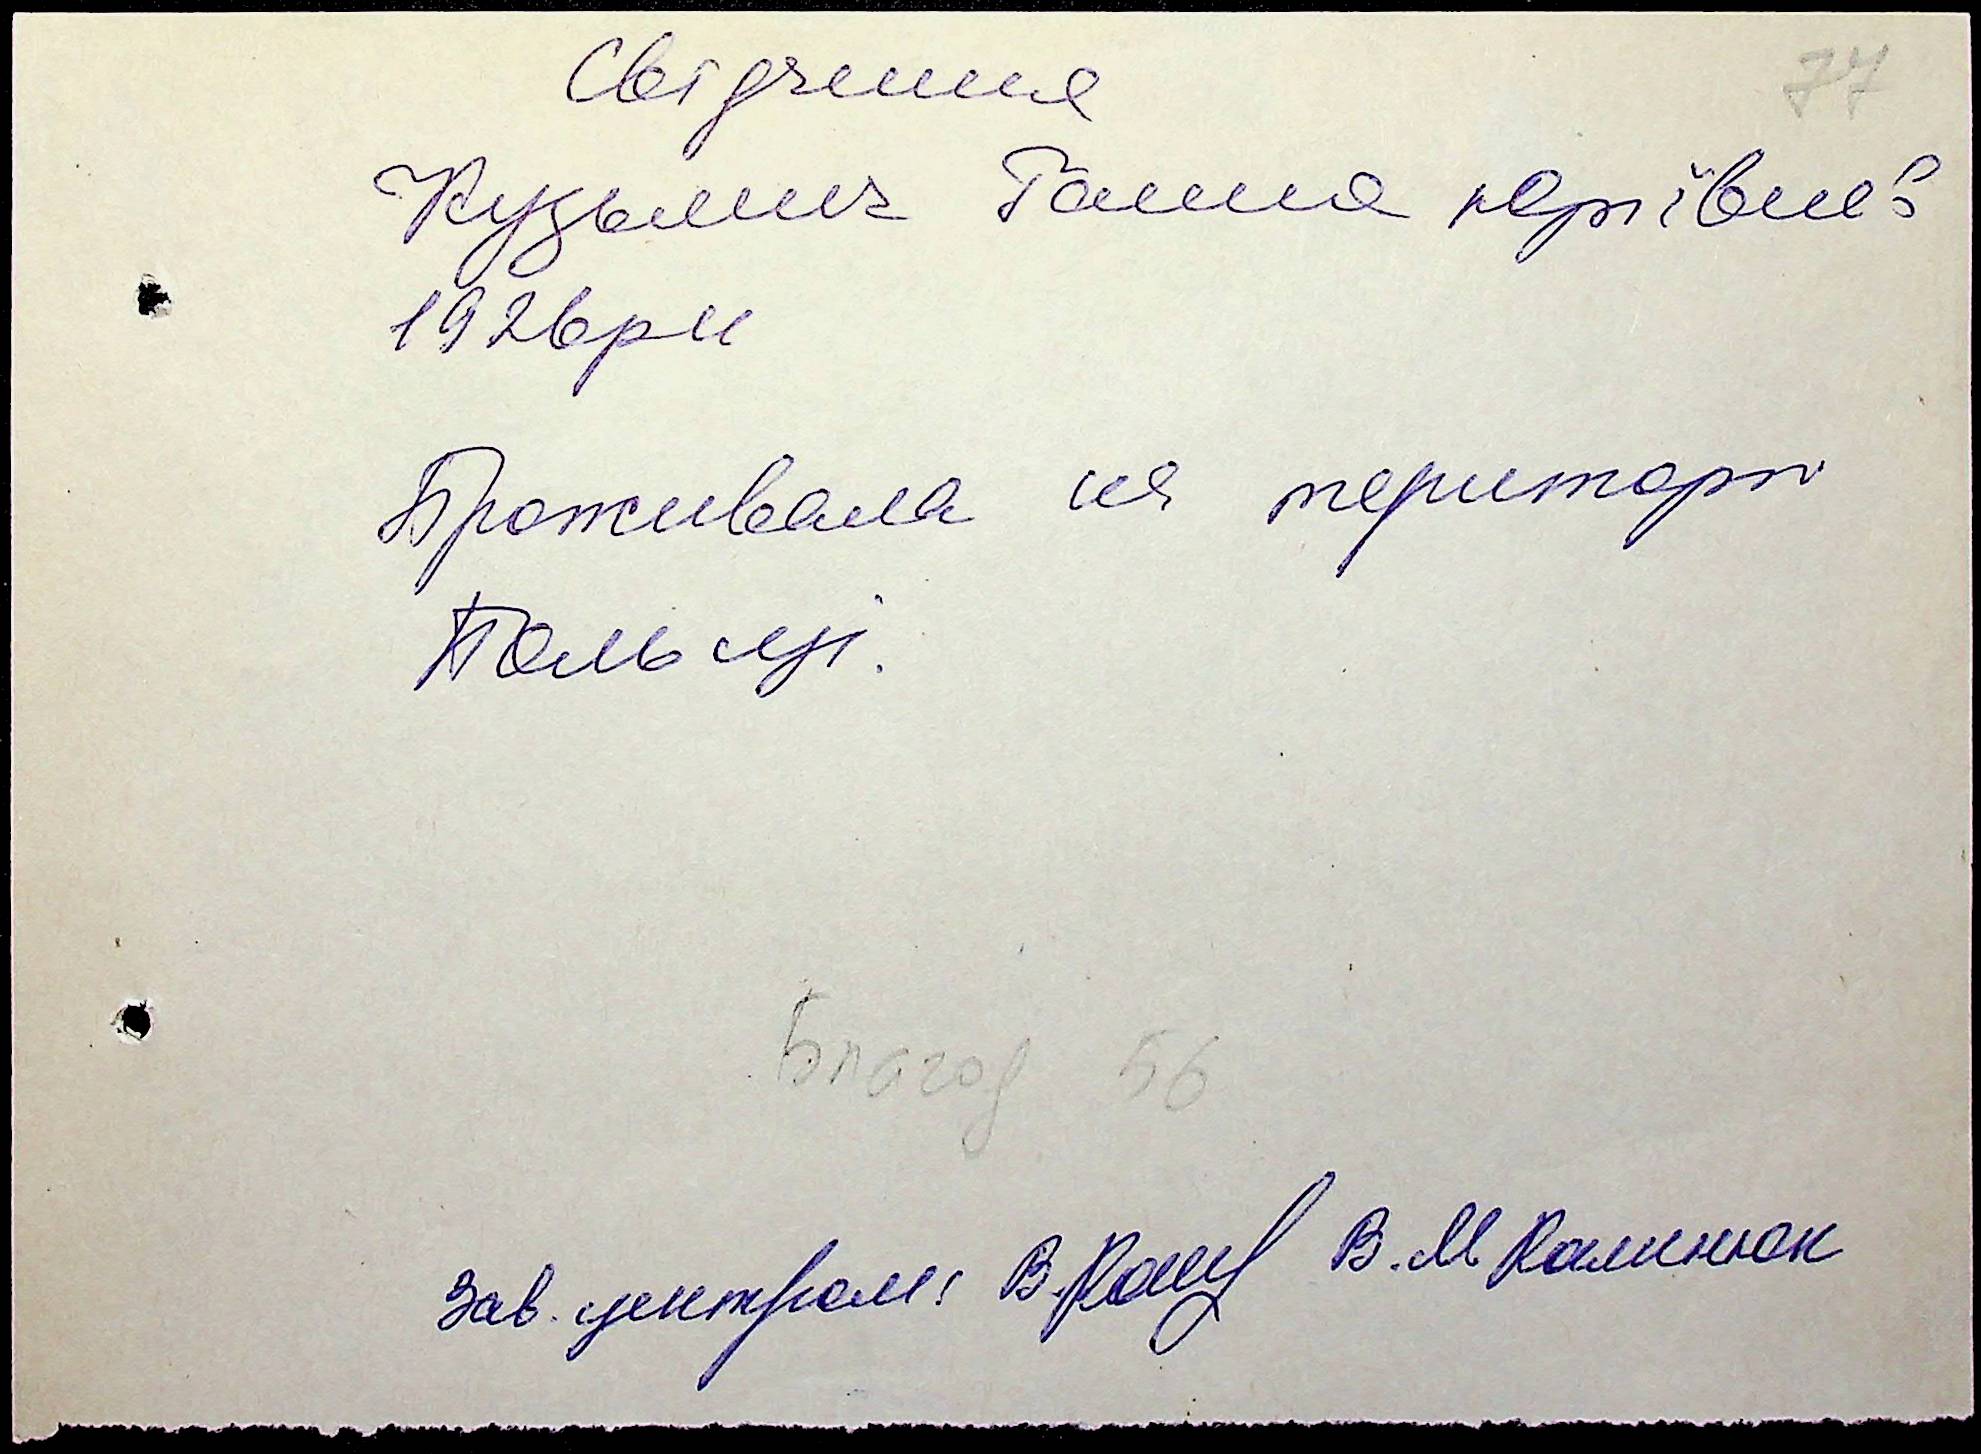 Свідчення
77
Кузьмич Ганна Юріївна
1926 рн
Проживала на територі
Польщі.
Благод 56
Зав. центром: В. В. М. Калинюк